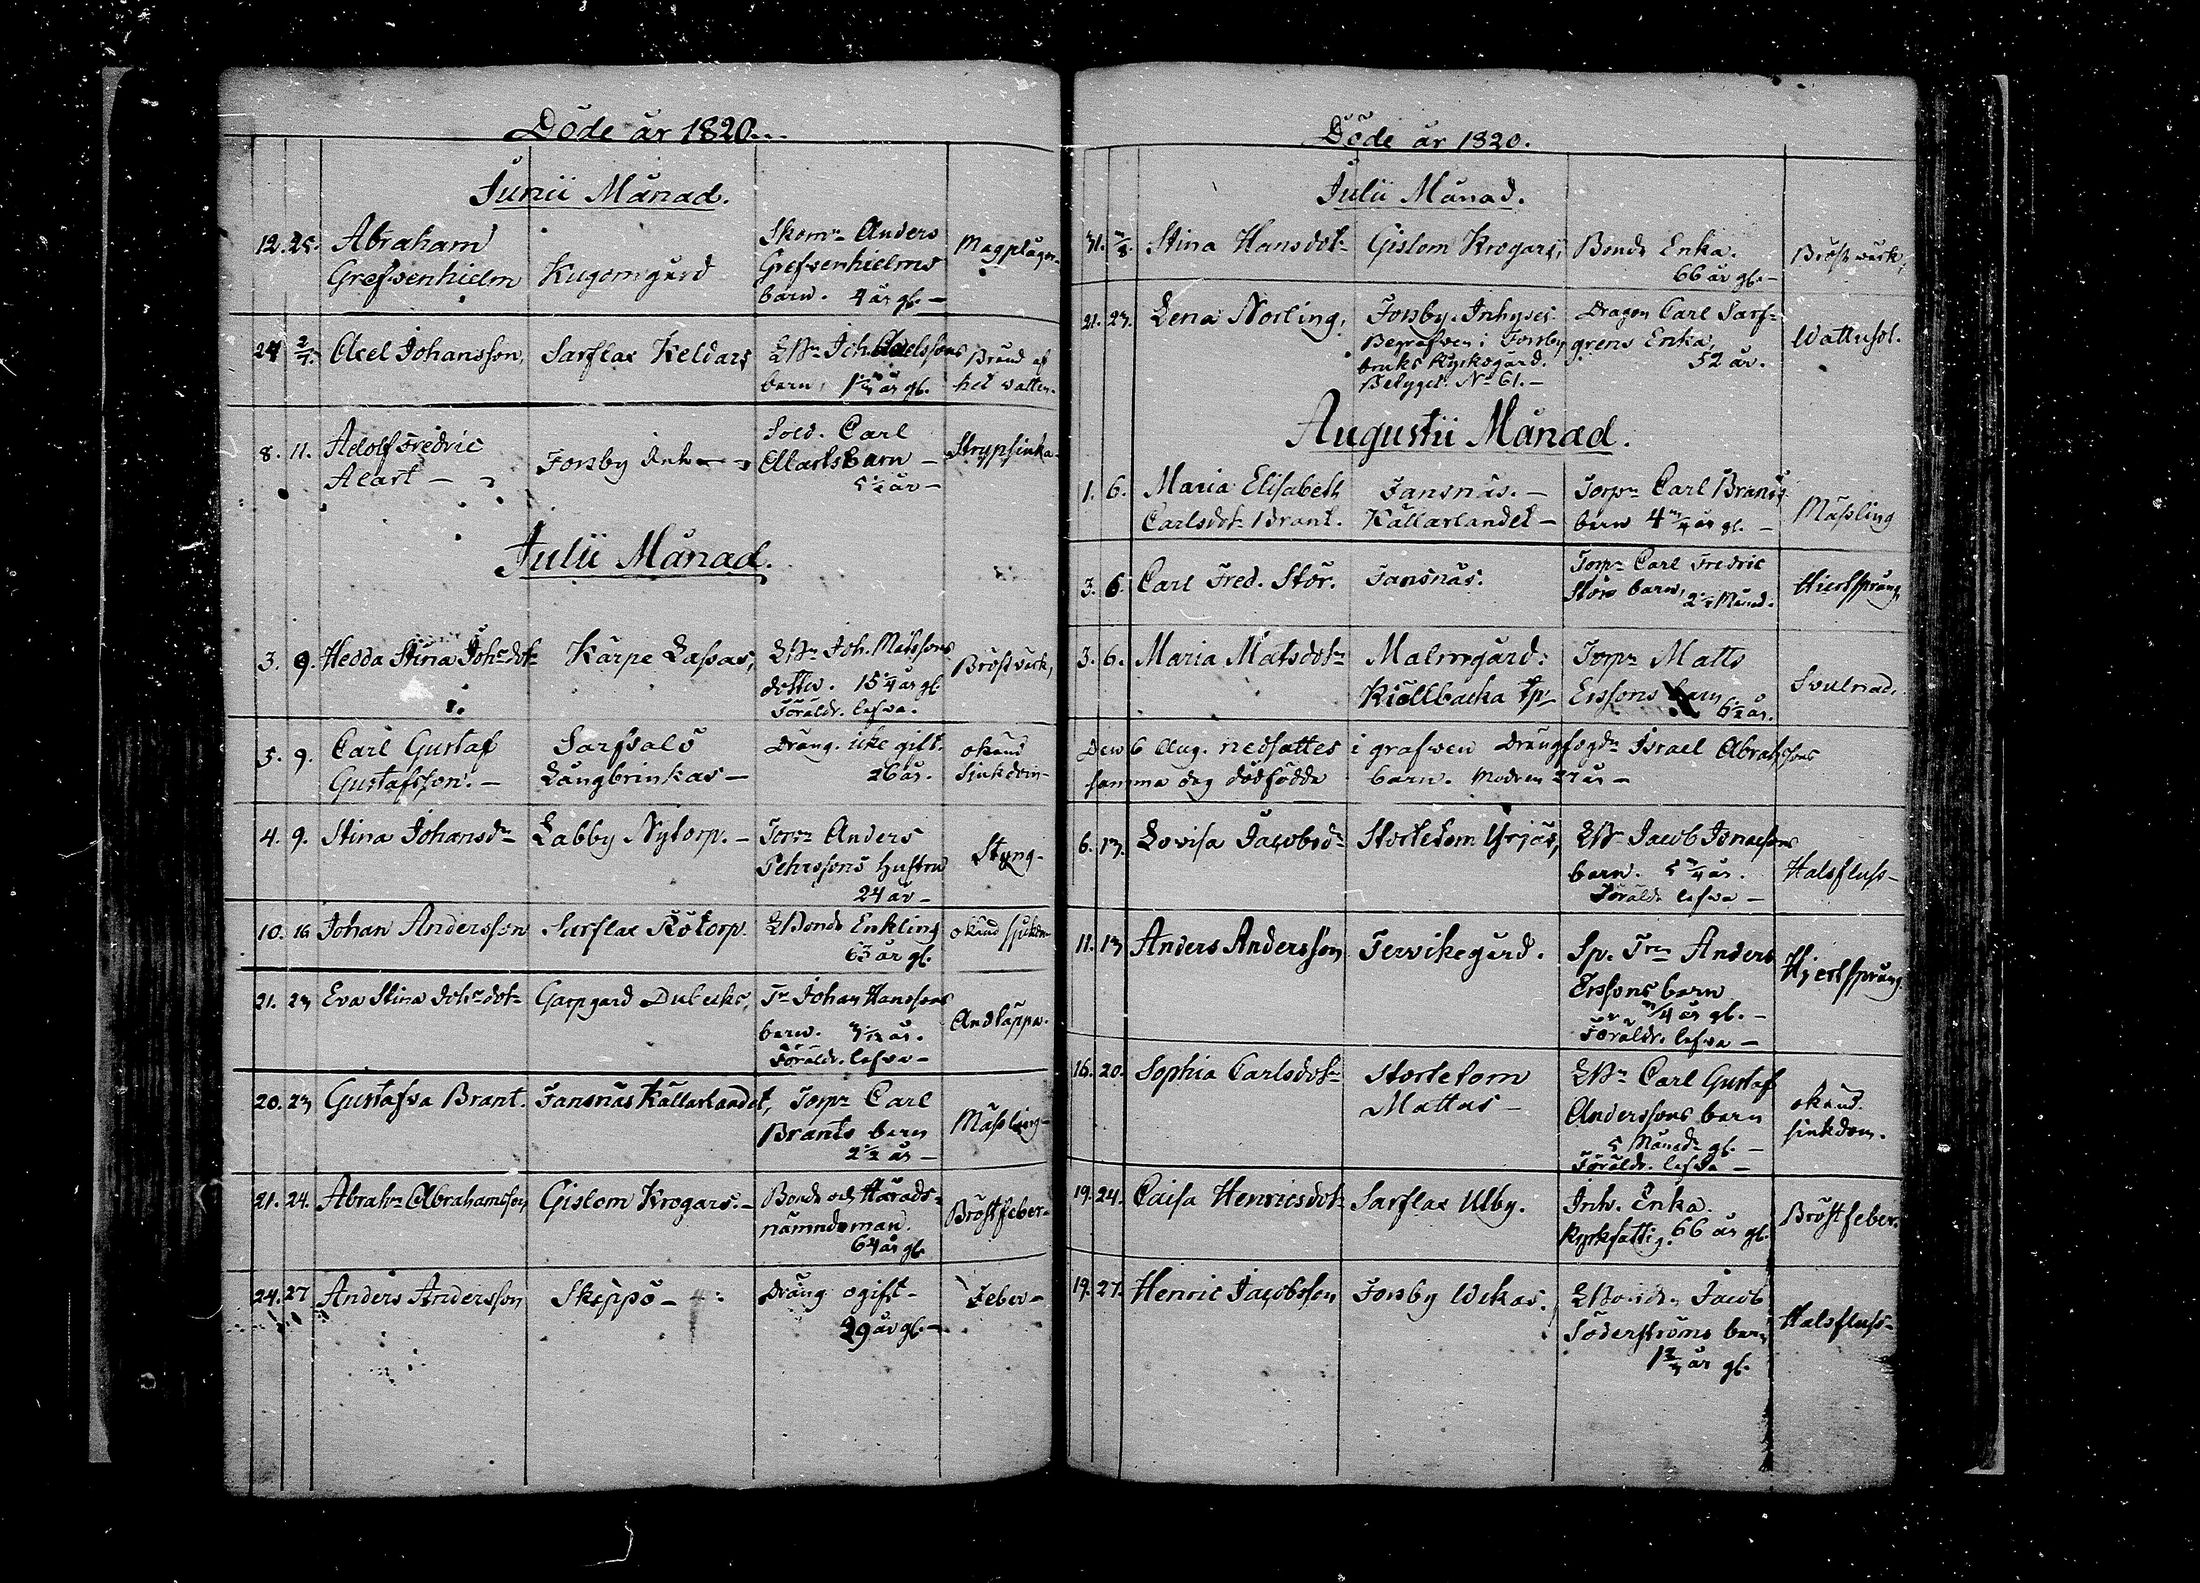 Döde år 1820.
Junii Månad.
12. 25. Abraham Grefvenhielm Kugomgård Skomr Anders Grefvenhielms barn. 4 år gl. — Magplågor
24 2/7. Axel Johansson, Sarflax Keldars LBr Joh. Axelssons barn, år gl. Bränd af het vatten.
8. 11. Adolf Fredric Alart — Forsby Inh Sold. Carl Alarts barn — 5 1/2 år — Strypsiuka
Julii Månad.
3. 9. Hedda Stina Johsdotr Kärpe Lassas, LBr Joh. Matssons dotter. 15 1/4 år gl. Föräldr. lefva. Bröstverk,
5. 9. Carl Gustaf Gustafsson. — Sarfsalö Långbrinkas — Dräng. icke gift. 26 år. okänd siukdom
4. 9. Stina Johansdr Labby Nytorp. — Torpr Anders Pehrssons hustru 24 år — Styng
10. 16 Johan Andersson Sarflax Rötorp. LBonde Enkling 63 år gl. okänd sjukdom
21. 23 Eva Stina Johsdotr Garpgard Dubecks, Tr Johan Hanssons barn. år. Föräldr. lefva — Andtäppa.
20. 23 Gustafva Brant. Jansnäs Källarlandet, Torpr Carl Brants barn 2 1/2 år — Mässling
21. 24. Abrahm Abrahamsson, Gislom Krogars. — Bonde och Härads-nämndeman. 64 år gl. Bröstfeber
24. 27 Anders Andersson Skeppö — Dräng ogift — 29 år gl. — Feber —
Döde år 1820.
Julii Månad.
31. 3/8 Stina Hansdotr Gislom Krogars, Bonde Enka. 66 år gl. — Bröstwärk,
21. 23. Lena Norling, Forsby. Inhyses Begrafven i Forsby bruks Kyrkogård. Betyget. No 61. — Dragon Carl Sarfgrens Enka, 52 år. Wattusot.
Augustii Månad.
1. 6. Maria Elisabeth Carlsdotr Brant. Jansnäs. — Källarlandet — Torpr Carl Brants barn 4 3/4 år gl. — Mässling
3. 6. Carl Fred. Stör. Jansnäs. Torpr Carl Fredric Störs barn, 2 1/2 Månad. Hiertsprång
3. 6. Maria Matsdotr Malmgård. Kiällbacka tp. Torpr Matts Erssons barn 6 1/2 år. Svulnad.
Den 6 Aug. nedsattes i grafwen Drängfogdn Israel Abrahssons
samma dag dödfödda barn. Modren 27 år —
6. 13. Lovisa Jacobsdr Stortetom Yrjäs, LBr Jacob Isracssons barn. 5 3/4 år. Föräldr lefva — Halsfluss —
11. 13 Anders Andersson Tervikegård. Sp. Tr Anders Erssons barn 3/4 år gl. — Föräldr. lefva — Hjertsprång
16. 20. Sophia Carlsdotr Stortetom Mattas — LBr Carl Gustaf Anderssons barn 5 Månadr gl. — Föräldr. lefva — okänd siukdom.
19. 24. Caisa Henricsdotr Sarflax Ulby. Inh. Enka. Kyrkfattig. 66 år gl. Bröstfeber.
19. 27. Henric Jacobsson Forsby Wekas. LBonden Jacob Söderströms barn 1 3/4 år gl. Halsfluss —